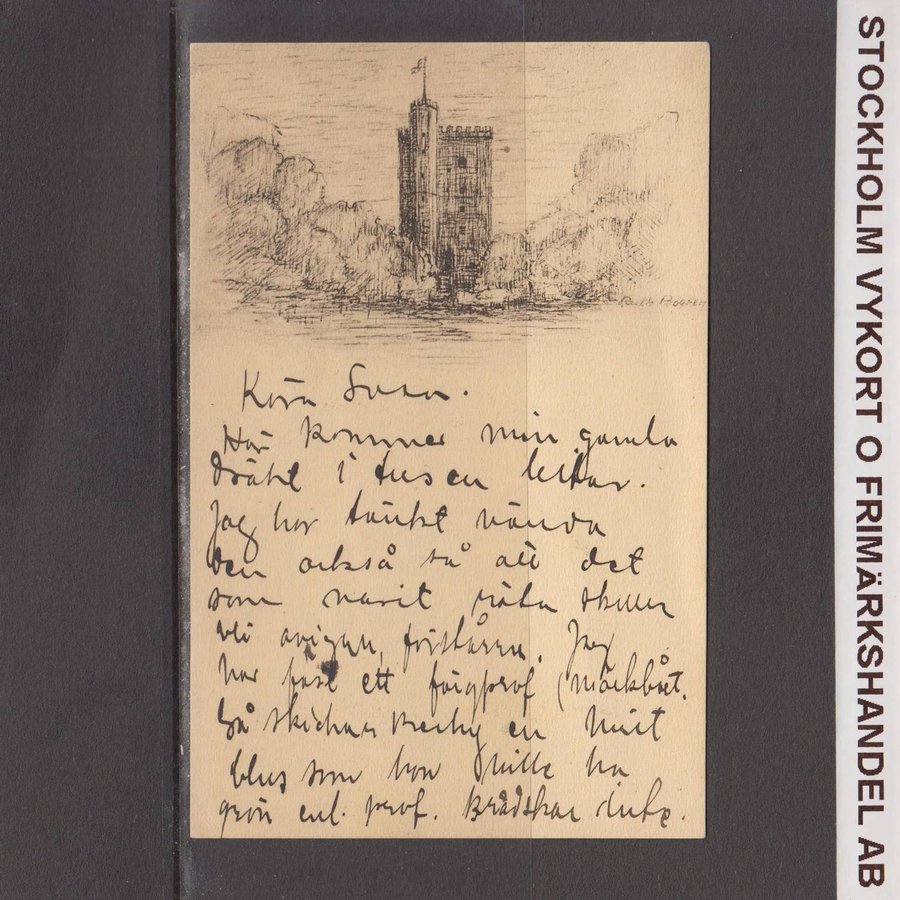 Ruth Bogren
Kära Susa.
Här kommer min gamla
dräkt i tusen bitar.
Jag har tänkt vända
den också så att det
som varit räta skulle
bli avigan, förstå.
har fäst ett färgprof (mörkblått.
Så skickar en hvit
blus som hon ville ha
grön enl. prof. Brådskar inte.
STOCKHOLM VYKORT O FRIMÄRKSHANDEL AB